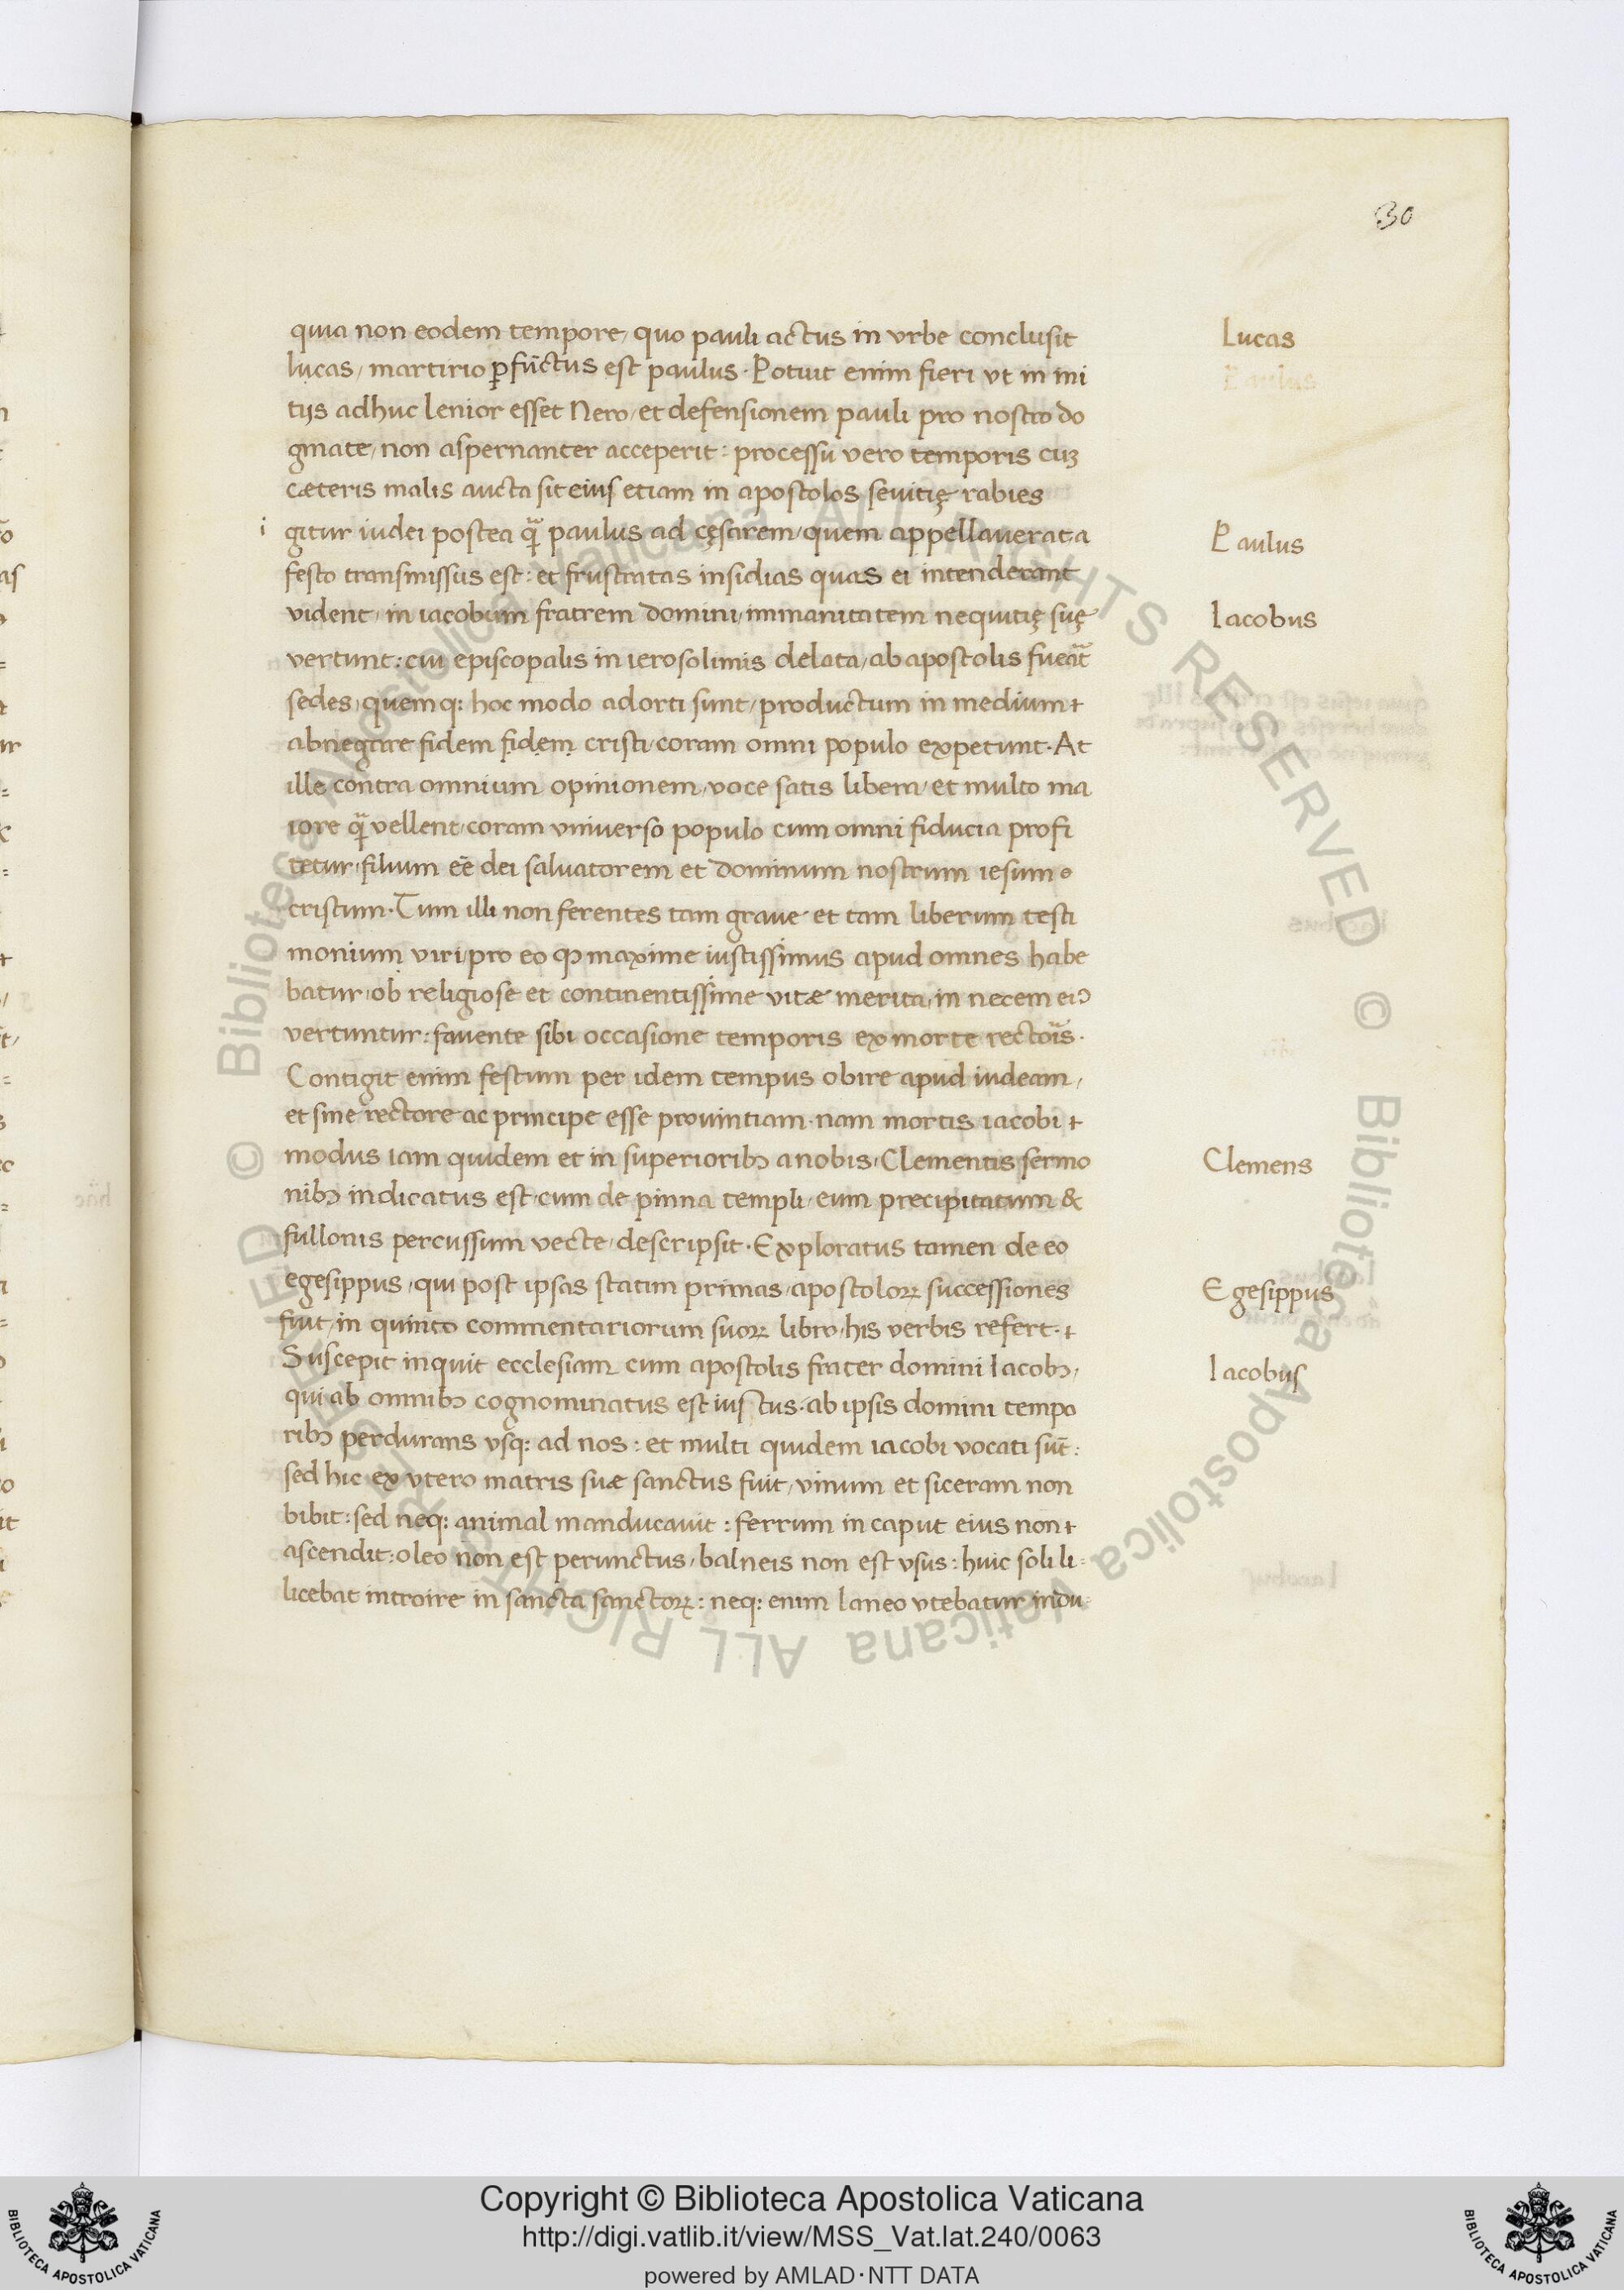 30
quia non eodem tempore, quo pauli actus in vrbe conclusit
lucas, martirio ꝑfūctus est paulus. Potuit enim fieri vt in ini
tijs adhuc lenior esset Nero, et defensionem pauli pro nostro do
gmate, non aspernanter acceperit: processū vero temporis cuꝫ
cæteris malis aucta sit eius etiam in apostolos sevitię rabies
i gitur iudei postea q̄ paulus ad cęsarem, quem appellauerat, a
festo transmissus est: et frustratas insidias quas ei intenderant
vident, in iacobum fratrem domini, immanitatem nequitię suę
vertunt: cui episcopalis in ierosolimis delata, ab apostolis fuēat
sedes, quemq: hoc modo adorti sunt, productum in medium +
abnegare fidem fidem cristi, coram omni populo expetunt. At
ille contra omnium opinionem, voce satis libera, et multo ma
iore q̄ vellent, coram vniuerso populo cum omni fiducia profi
tetur, filium eē dei saluatorem et dominum nostrum iesum
cristum. Tum illi non ferentes tam graue et tam liberum testi
monium viri, pro eo ꝙ maxime iustissimus apud omnes habe
batur, ob religiose et continentissime vitæ merita, in necem eiꝰ
vertuntur: fauente sibi occasione temporis ex morte rectōis.
Contigit enim festum per idem tempus obire apud iudeam,
et sine rectore ac principe esse prouintiam. nam mortis iacobi +
modus iam quidem et in superioribꝰ a nobis, Clementis sermo
nibꝰ indicatus est, cum de pinna templi, eum precipitatum &
fullonis percussum vecte, descripsit. Exploratus tamen de eo
egesippus, qui post ipsas statim primas, apostoloꝝ successiones
fuit, in quinto commentariorum suoꝝ libro, his verbis refert. +
Suscepit inquit ecclesiam cum apostolis frater domini Iacobꝰ,
qui ab omnibꝰ cognominatus est iustus. ab ipsis domini tempo
ribꝰ perdurans vsq: ad nos: et multi quidem iacobi vocati sūt:
sed hic ex vtero matris suæ sanctus fuit, vinum et siceram non
bibit: sed neq: animal manducauit: ferrum in caput eius non +
ascendit: oleo non est perunctus, balneis non est vsus: huic soli li=
licebat introire in sancta sanctoꝝ: neq: enim laneo vtebatur indu=
Lucas
Paulus
Paulus
Iacobus
Clemens
Egesippus
Iacobus
© Biblioteca Apostolica Vaticana ALL RIGHTS RESERVED © Biblioteca Apostolica Vaticana ALL RIGHTS RESERVED
Copyright © Biblioteca Apostolica Vaticana
http://digi.vatlib.it/view/MSS_Vat.lat.240/0063
powered by AMLAD·NTT DATA
BIBLIOTECA APOSTOLICA VATICANA
BIBLIOTECA APOSTOLICA VATICANA